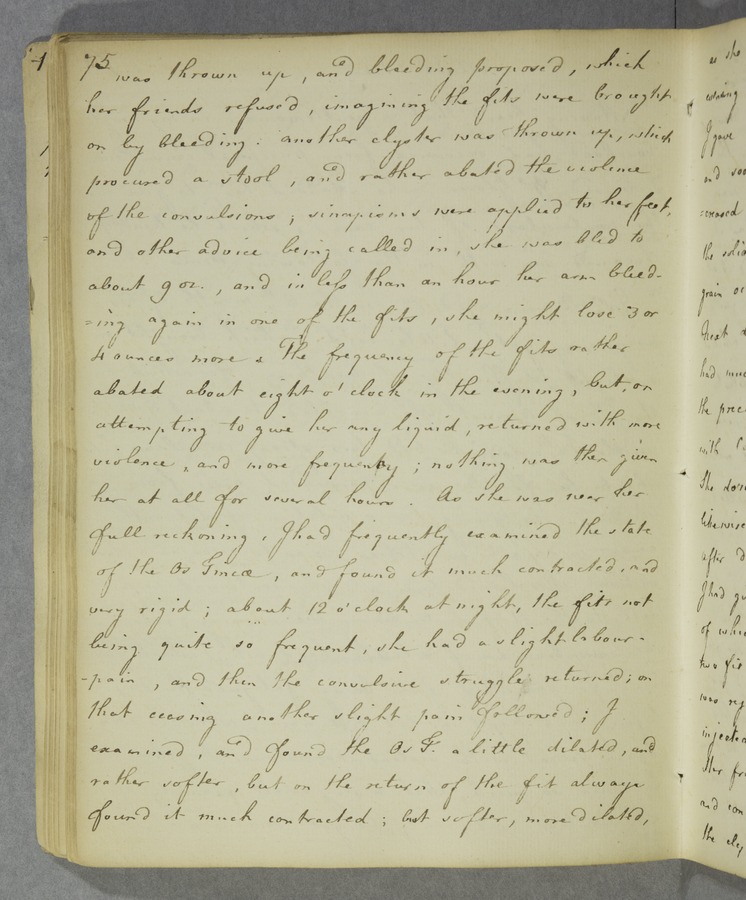 75
was thrown up, and bleeding proposed, which
her friends refused, imagining the fits were brought
on by bleeding: another clyster was thrown up, which
procured a stool, and rather abated the violence
of the convulsions; sinapisms were applied to her feet,
and other advice being called in, she was bled to
about 9 oz., and in less than an hour her arm bleed-
=ing again in one of the fits, she might lose 3 or
4 ounces more. The frequency of the fits rather
abated about eight o'clock in the evening, but, on
attempting to give her any liquid, returned with more
violence, and more frequently; nothing was then given
her at all for several hours. As she was near her
full reckoning, I had frequently examined the state
of the Os Tincæ, and found it much contracted, and
very rigid; about 12 o'clock at night, the fits not
being quite so frequent, she had a slight labour-
-pain, and then the convulsive struggle returned; on
that ceasing another slight pain followed; I
examined, and found the Os T. a little dilated, and
rather softer, but on the return of the fit always
found it much contracted; but softer, more dilated,
as she
I gave
and soo
=creased
the
grain or
had muc
the prec
with
She
likewise
after
I had
of whi
two fi
was
injecte
Her fr
and con
the cly